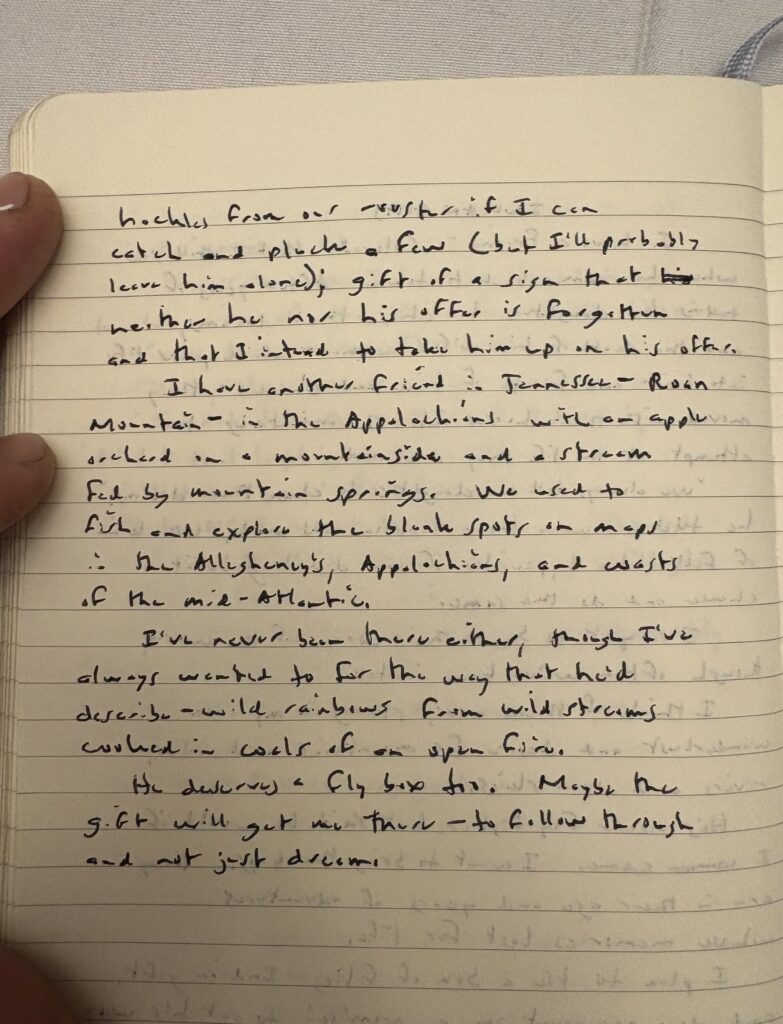 hackles from our rooster if I can
catch and pluck a few (but I'll probably
leave him alone); gift of a sign that
neither he nor his offer is forgotten
and that I intend to take him up on his offer.
I have another friend in Tennessee - Roan
Mountain - in the Appalachians with an apple
orchard on a mountainside and a stream
fed by mountain springs. We used to
fish and explore the blank spots on maps
in the Allegheny's, Appalachians, and wasts
of the mid-Atlantic.
I've never been there either, though I've
always wanted to for the way that he'd
describe - wild rainbows from wild streams
cooked in coals of an open fire.
He deserves a fly box too. Maybe the
gift will get me there - to follow through
and not just dream.